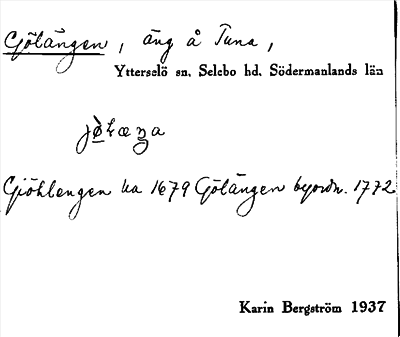 Gölängen, äng å Tuna,
Ytterselö sn. Selebo hd. Södermanlands län
Gjöhlengen ka 1679 Gölängen byordn. 1772
Karin Bergström 1937